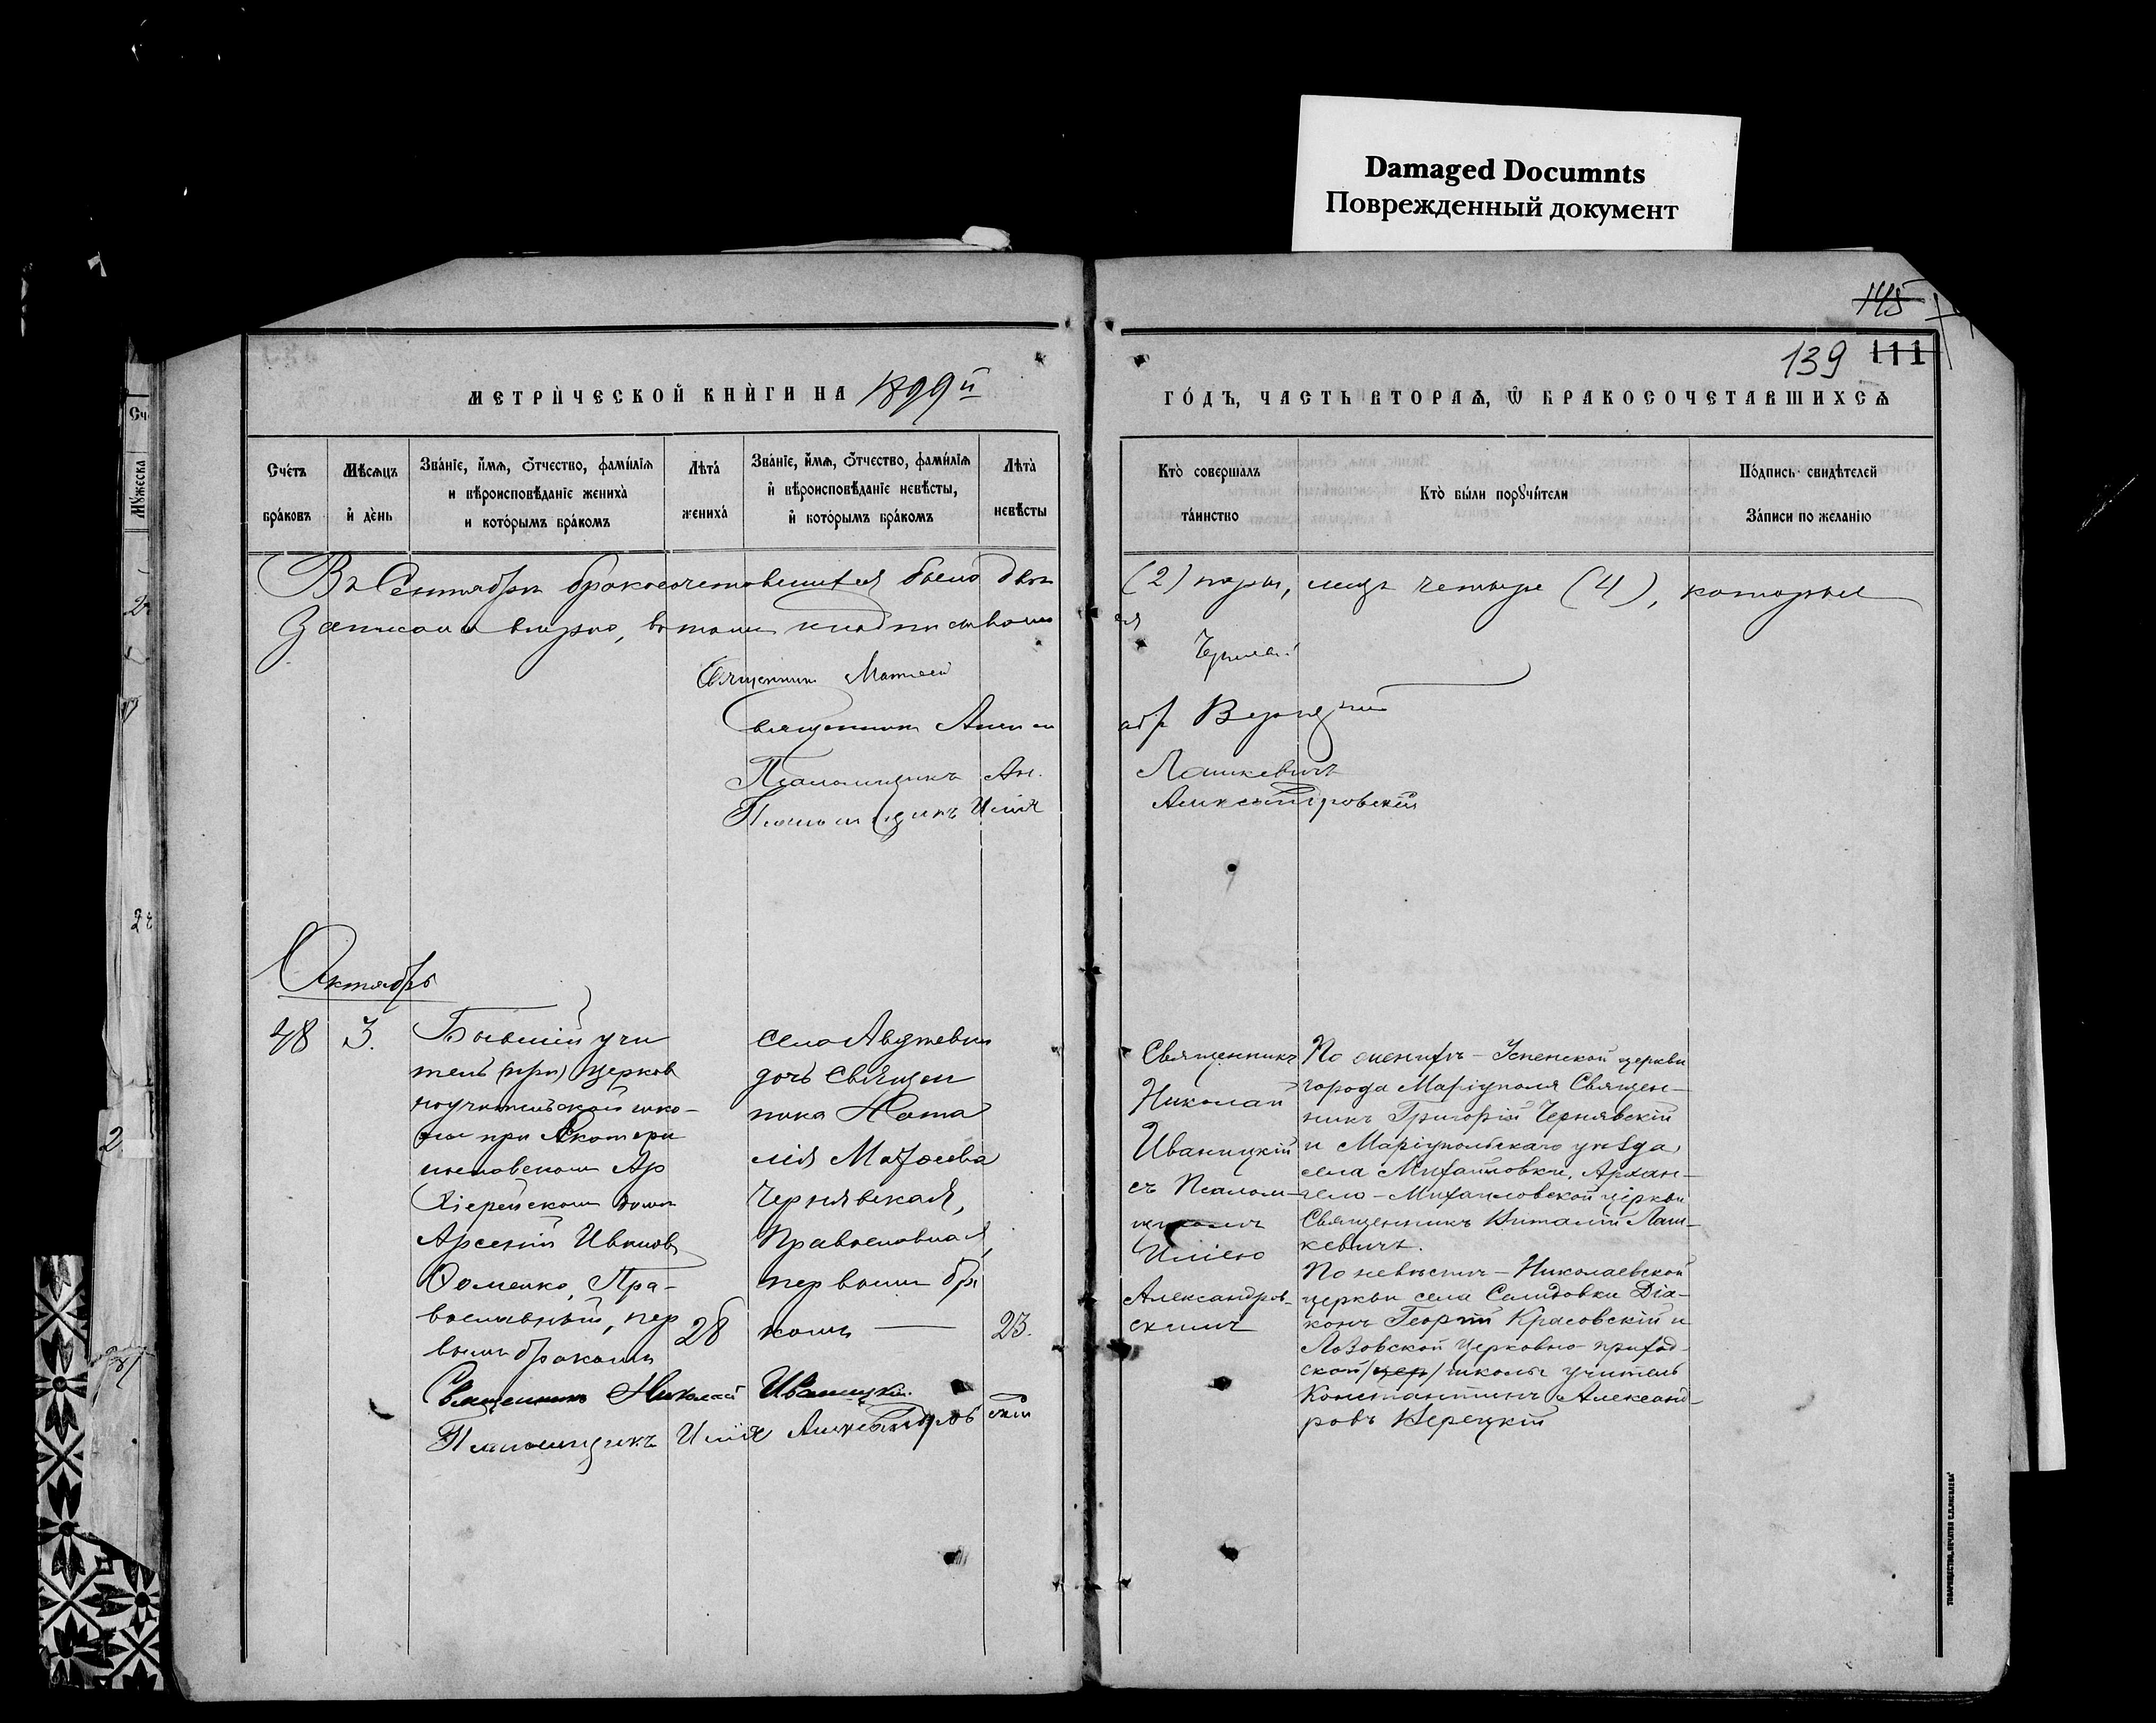 Damaged Documnts
Поврежденный документ
145
139 111
МЕТРИЧЕСКОЙ КНИГИ НА 1899й
ГОДЪ, ЧАСТЬ ВТОРАѦ, Ѿ БРАКОСОЧЕТАВШИХСѦ
Счетъ браковъ
Мѣсѧцъ и день
Званіе, имѧ, отчество, фамиліѧ и вѣроисповѣданіе жениха и которымъ бракомъ
Лѣта жениха
Званіе, имѧ, отчество, фамиліѧ и вѣроисповѣданіе невѣсты, и которымъ бракомъ
Лѣта невѣсты
Кто совершалъ таинство
Кто были поручители
Подпись свидѣтелей записи по желанію
Въ Сентябрѣ бракосочетавшихся было двѣ (2) пары, лицъ четыре (4), которые
записаны вѣрно, въ томъ и подписываемся
Священникъ Матѳей Черняв
Священникъ
Псаломщикъ Лашкевичъ
Псаломщикъ Илія Александровскій
Октябрь
48
3.
Бывшій учи
тель (при) церков
ноучительской шко-
лы при Екатери
нославскомъ Ар
хіерейскомъ домѣ
Арсеній Ивановъ
Ѳоменко, Пра-
вославный, пер
вымъ бракомъ
28
села Авдѣевки
дочь Священ
ника Ната
лія Матѳеева
Чернявская,
Православная,
первымъ бра
комъ —
23.
Священникъ Николай Иваницкій
Псаломщикъ Илія Александровскій
Священникъ
Николай
Иваницкій
съ Псалом-
щикомъ
Иліею
Александров-
скимъ
По женихѣ - Успенской церкви
города Маріуполя Священ-
никъ Григорій Чернявскій
и Маріупольскаго уѣзда
села Михайловки, Архан-
гело-Михайловской церкви
Священникъ Виталій Лаш-
кевичъ.
По невѣстѣ - Николаевской
церкви села Селидовки Діа-
конъ Георгій Красовскій и
Лозовской церковно-приход-
ской /цер/ школы учитель
Константинъ Александ-
ровъ Верецкій